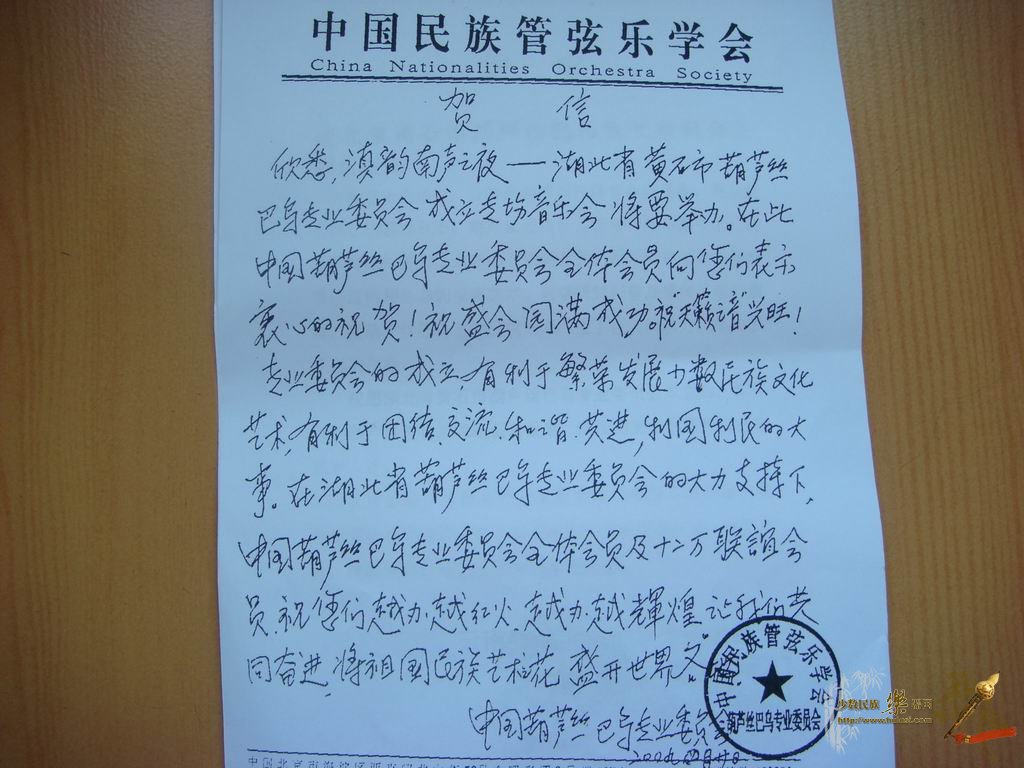 中国民族管弦乐学会
China Nationalities Orchestra Society
贺 信
欣悉,滇韵南声之夜——湖北省黄石市葫芦丝
巴乌专业委员会成立专场音乐会将要举办。在此
中国葫芦丝巴乌专业委员会全体会员向您们表示
衷心的祝贺!祝盛会圆满成功。祝天籁之音兴旺!
专业委员会的成立,有利于繁荣发展少数民族文化
艺术,有利于团结.交流.和谐.共进,利国利民的大
事。在湖北省葫芦丝巴乌专业委员会的大力支持下,
中国葫芦丝巴乌专业委员会全体会员及十二万联誼会
员,祝您们越办越红火.越办越輝煌。让我们共
同奋进,将祖国民族艺术花盛开世界
中国葫芦丝巴乌专业委员会
中国民族管弦乐学会
葫芦丝巴乌专业委员会
少数民族樂器网